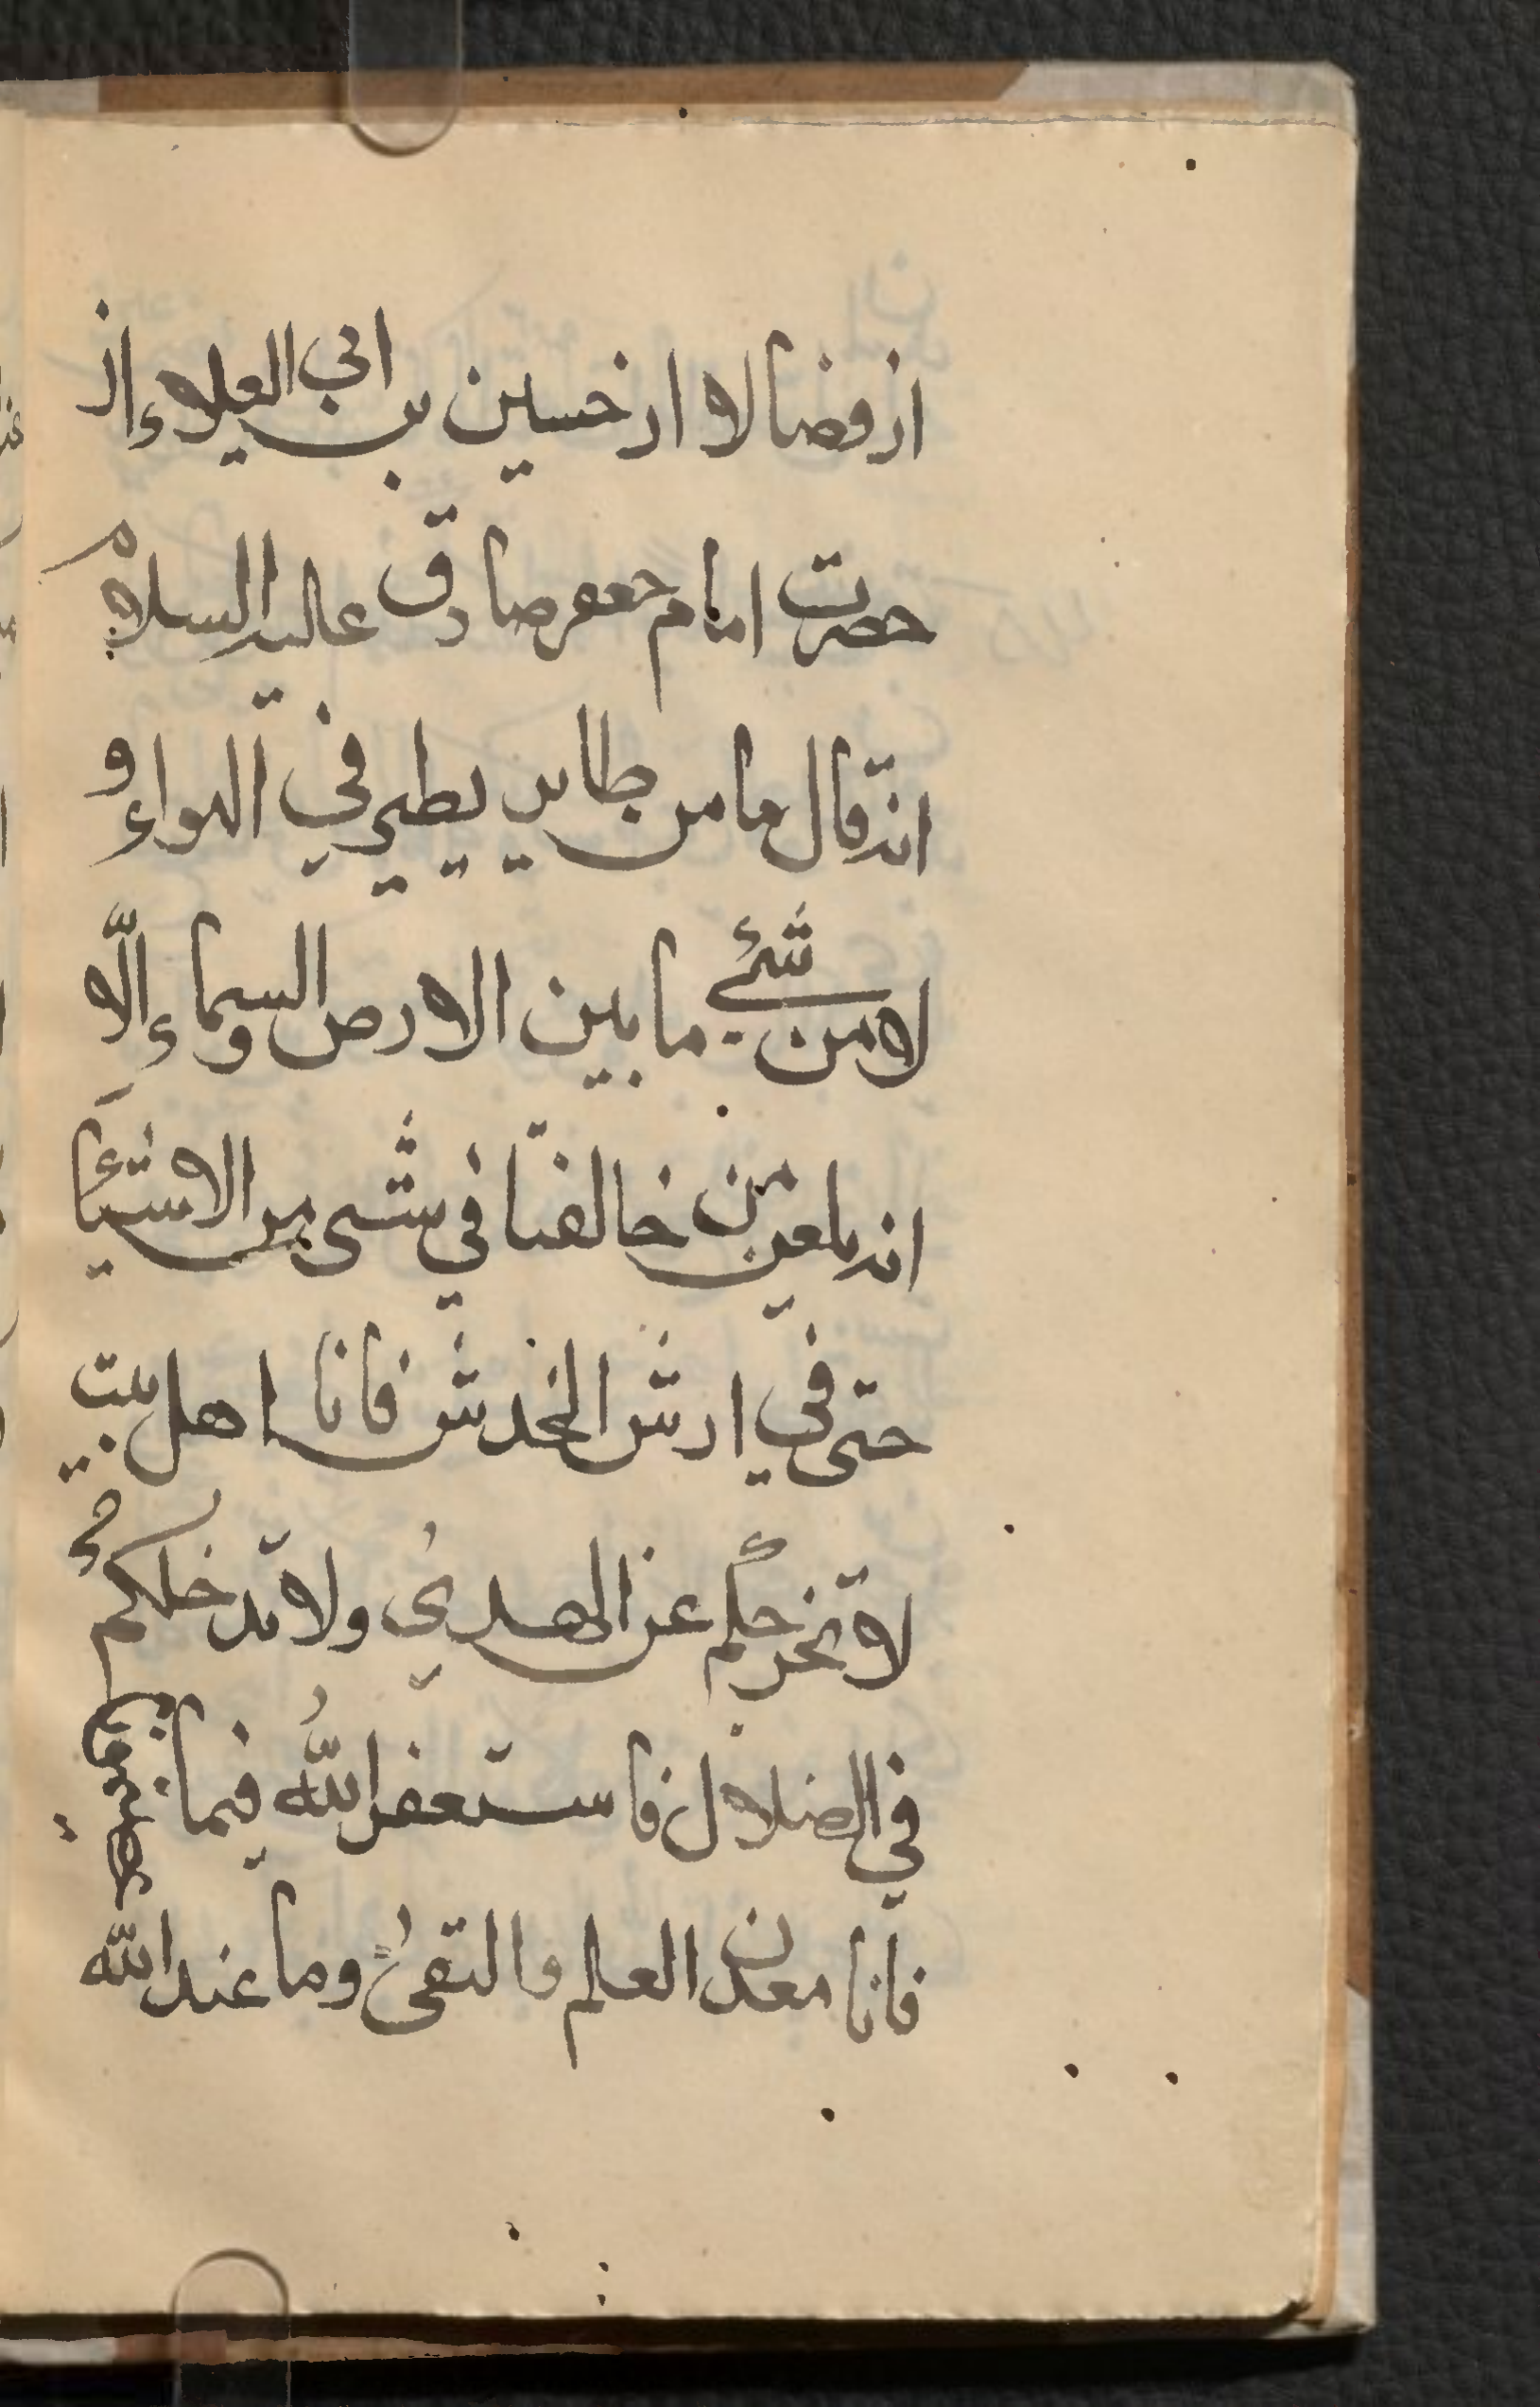 از فضالا از حسین بن ابی العلاء از
حضرت امام جعفر صادق علیه السلام
انه قال ما من طایر یطیر فی الهواء و
لا من شئی ما بین الارض و السماء الّا
انه یلعن من خالفنا فی شی من الاشیاء
حتی فی ارش الخدش فانا اهل بیت
لا نخرجکم عن الهدی ولا ندخلکم
فی الضلال فاستغفر الله فیما
فانا معدن العلم والتقی وما عند الله